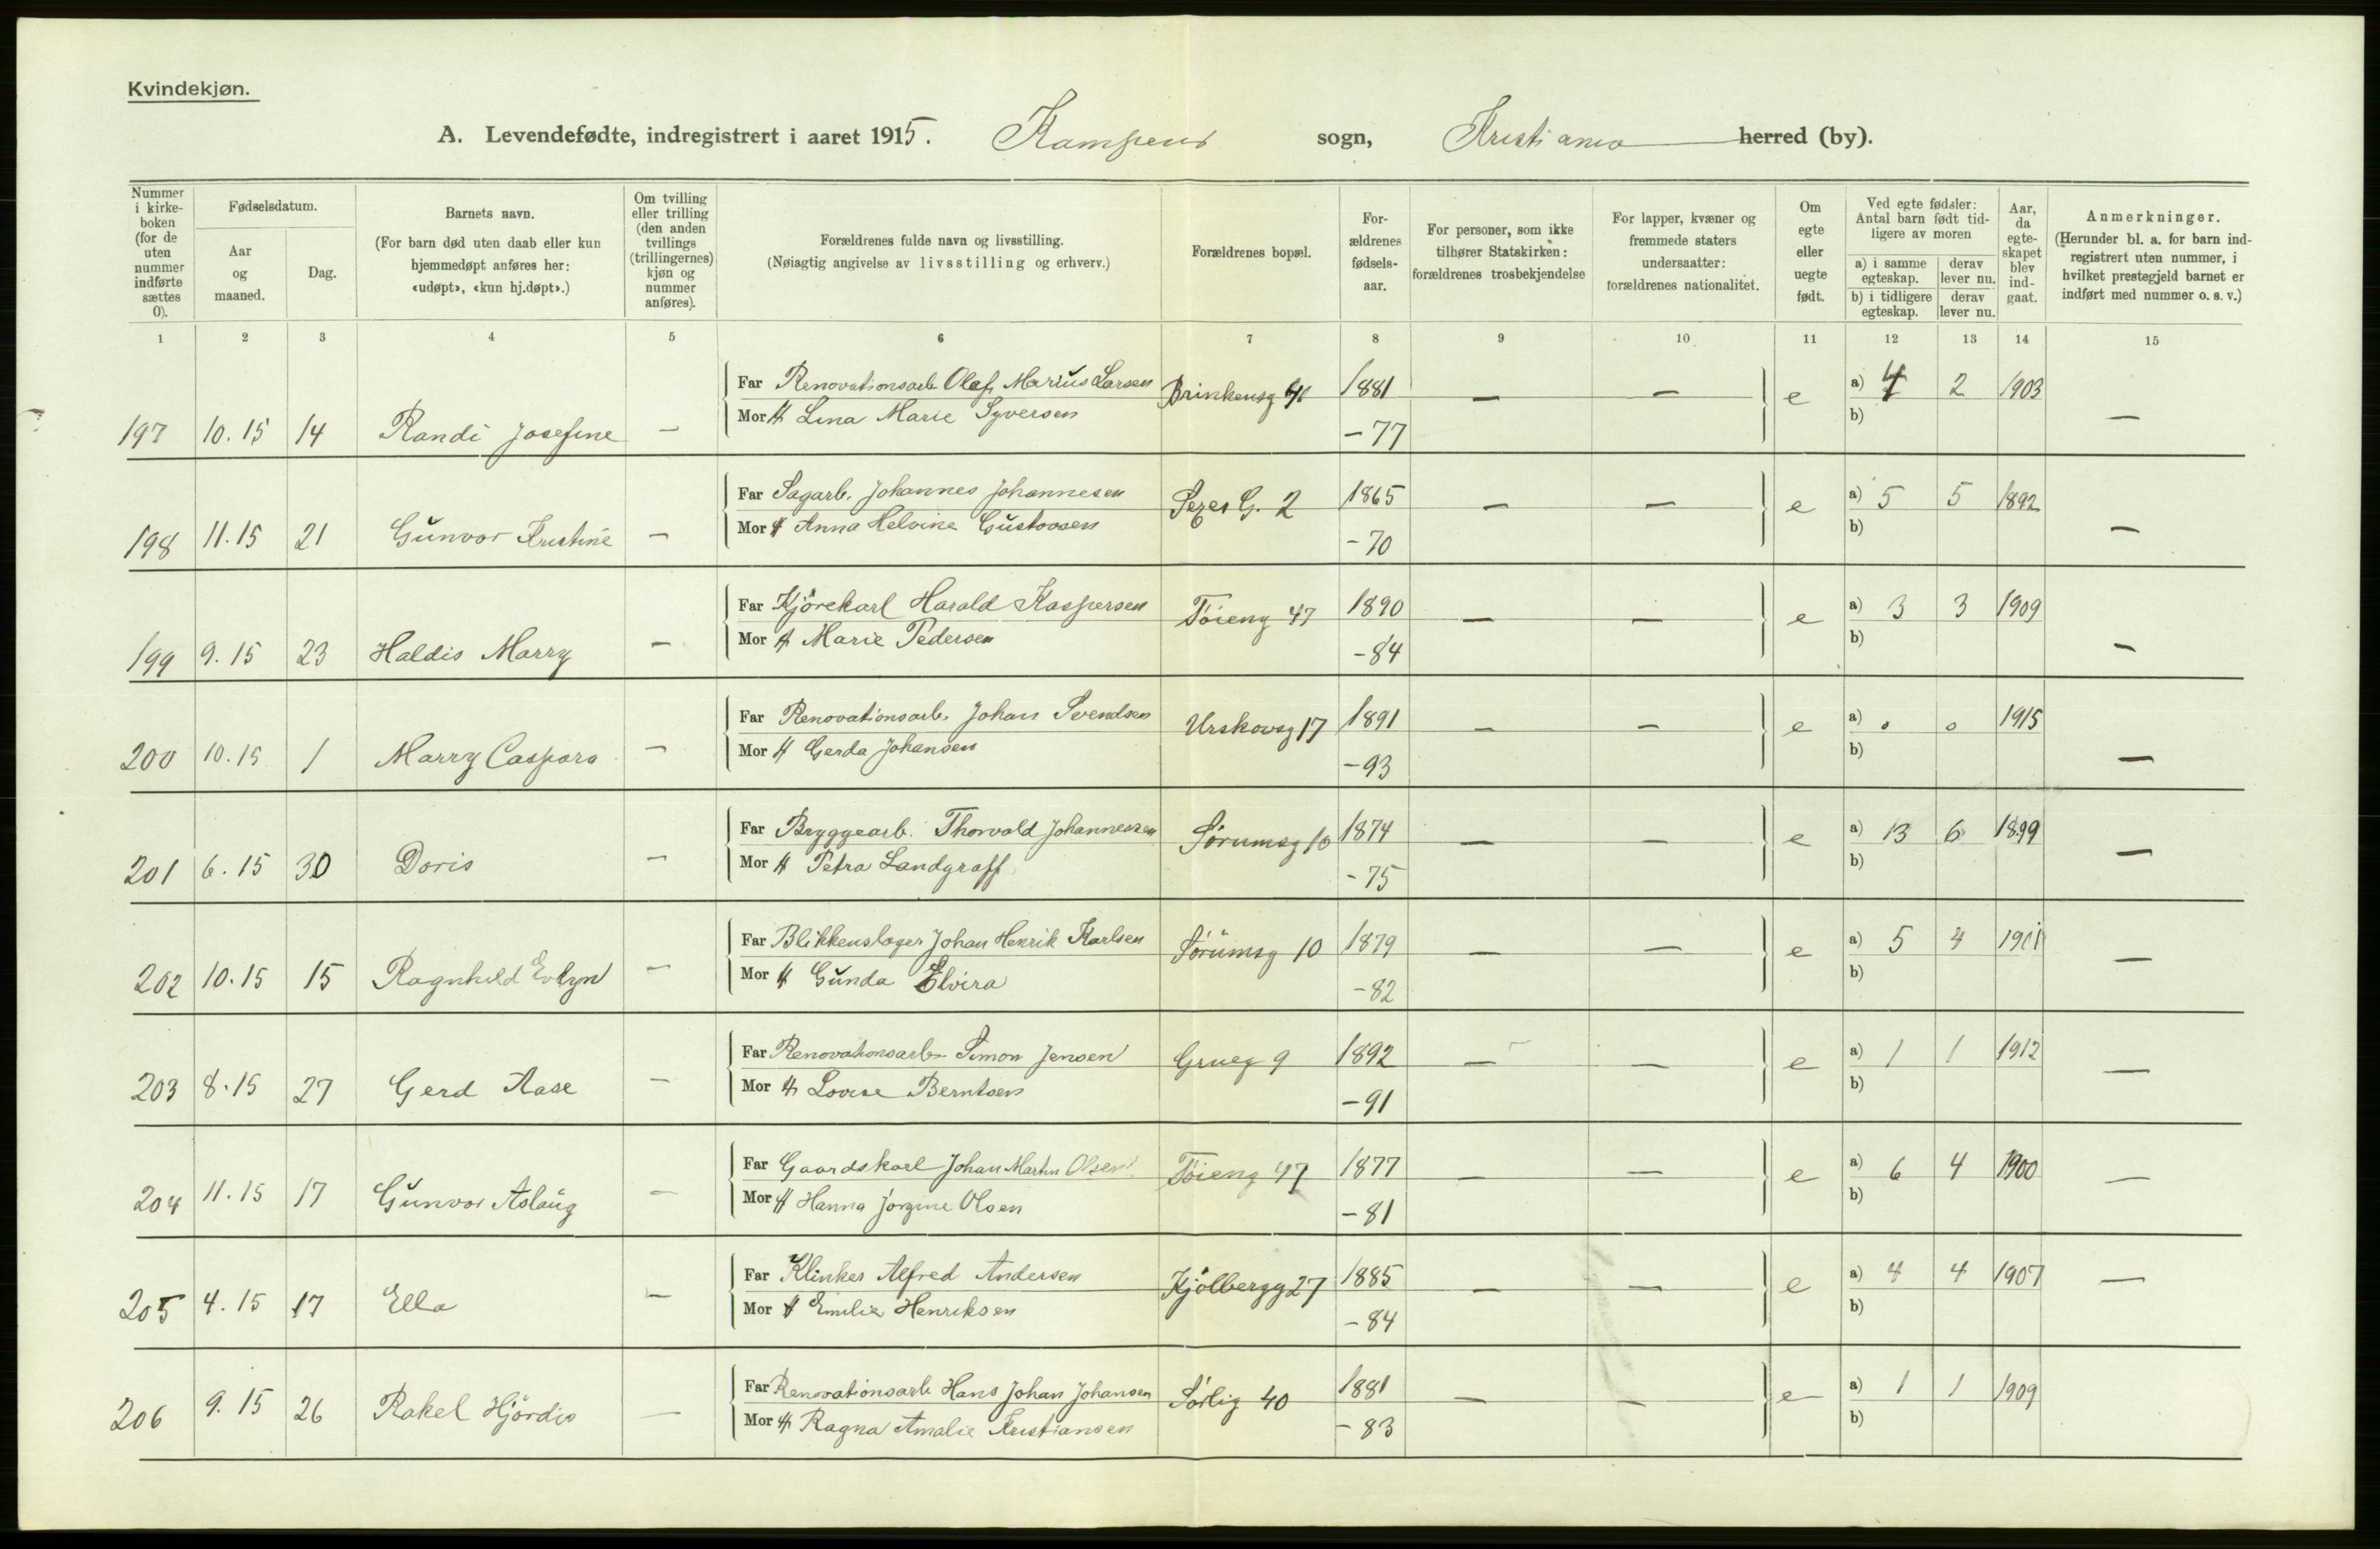 Kvindekjøn.
A. Levendefødte, indregistrert i aaret 1915. Kampens sogn, Kristiania herred (by).
Nummer i kirke-boken (for de uten nummer indførte sættes 0).
Fødselsdatum.
Aar og maaned.
Dag.
Barnets navn.
(For barn død uten daab eller kun hjemmedøpt anføres her: «udøpt», «kun hj.døpt».)
Om tvilling eller trilling (den anden tvillings (trillingernes) kjøn og nummer anføres).
Forældrenes fulde navn og livsstilling.
(Nøiagtig angivelse av livsstilling og erhverv.)
Forældrenes bopæl.
For-ældrenes fødsels-aar.
For personer, som ikke tilhører Statskirken: forældrenes trosbekjendelse
For lapper, kvæner og fremmede staters undersaatter: forældrenes nationalitet.
Om egte eller uegte født.
Ved egte fødsler: Antal barn født tid-ligere av moren
a) i samme egteskap. derav lever nu.
b) i tidligere egteskap. derav lever nu.
Aar, da egte-skapet blev ind-gaat.
Anmerkninger.
(Herunder bl. a. for barn ind-registrert uten nummer, i hvilket prestegjeld barnet er indført med nummer o. s. v.)
1 2 3 4 5 6 7 8 9 10 11 12 13 14 15
Far Renovationsarb Olaf Marius Larsen Brinkensg 1881 — — e a) 4 2 1903
197 10.15 14 Randi Josefine — Mor Lina Marie Syversen -77 b) —
Far Sagarb. Johannes Johannesen G. 2 1865 — — e a) 5 5 1892
198 11.15 21 Gunvor Kristine — Mor Anna Helvine Gustavsen -70 b) —
Far Kjørekarl Harald Kaspersen Tøieng 47 1890 — — e a) 3 3 1909
199 9.15 23 Haldis Marry — Mor Marie Pedersen -84 b) —
Far Renovationsarb. Johan Svendsen Urskovsg 17 1891 — — e a) 0 0 1915
200 10.15 1 Marry Caspara — Mor Gerda Johansen -93 b) —
Far Bryggearb. Thorvald Johannessen Sørumsg 10 1874 — — e a) 13 6 1899
201 6.15 30 Doris — Mor Petra Landgraff -75 b) —
Far Blikkenslager Johan Henrik Karlsen Sørumsg 10 1879 — — e a) 5 4 1901
202 10.15 15 Ragnhild Evelyn — Mor Gunda Elvira -82 b) —
Far Renovationsarb Simon Jensen Grueg 9 1892 — — e a) 1 1 1912
203 8.15 27 Gerd Aase — Mor Lovise Berntsen -91 b) —
Far Gaardskarl Johan Martin Olsen Tøieng 47 1877 — — e a) 6 4 1900
204 11.15 17 Gunvor Aslaug — Mor Hanna Jørgine Olsen -81 b) —
Far Klinker Alfred Andersen Kjølbergg 27 1885 — — e a) 4 4 1907 —
205 4.15 17 Ella — Mor Emilie Henriksen -84 b)
Far Renovationsarb Hans Johan Johansen Sørlig 40 1881 — — e a) 1 1 1909
206 9.15 26 Rakel Hjørdis — Mor Ragna Amalie Kristiansen -83 b)